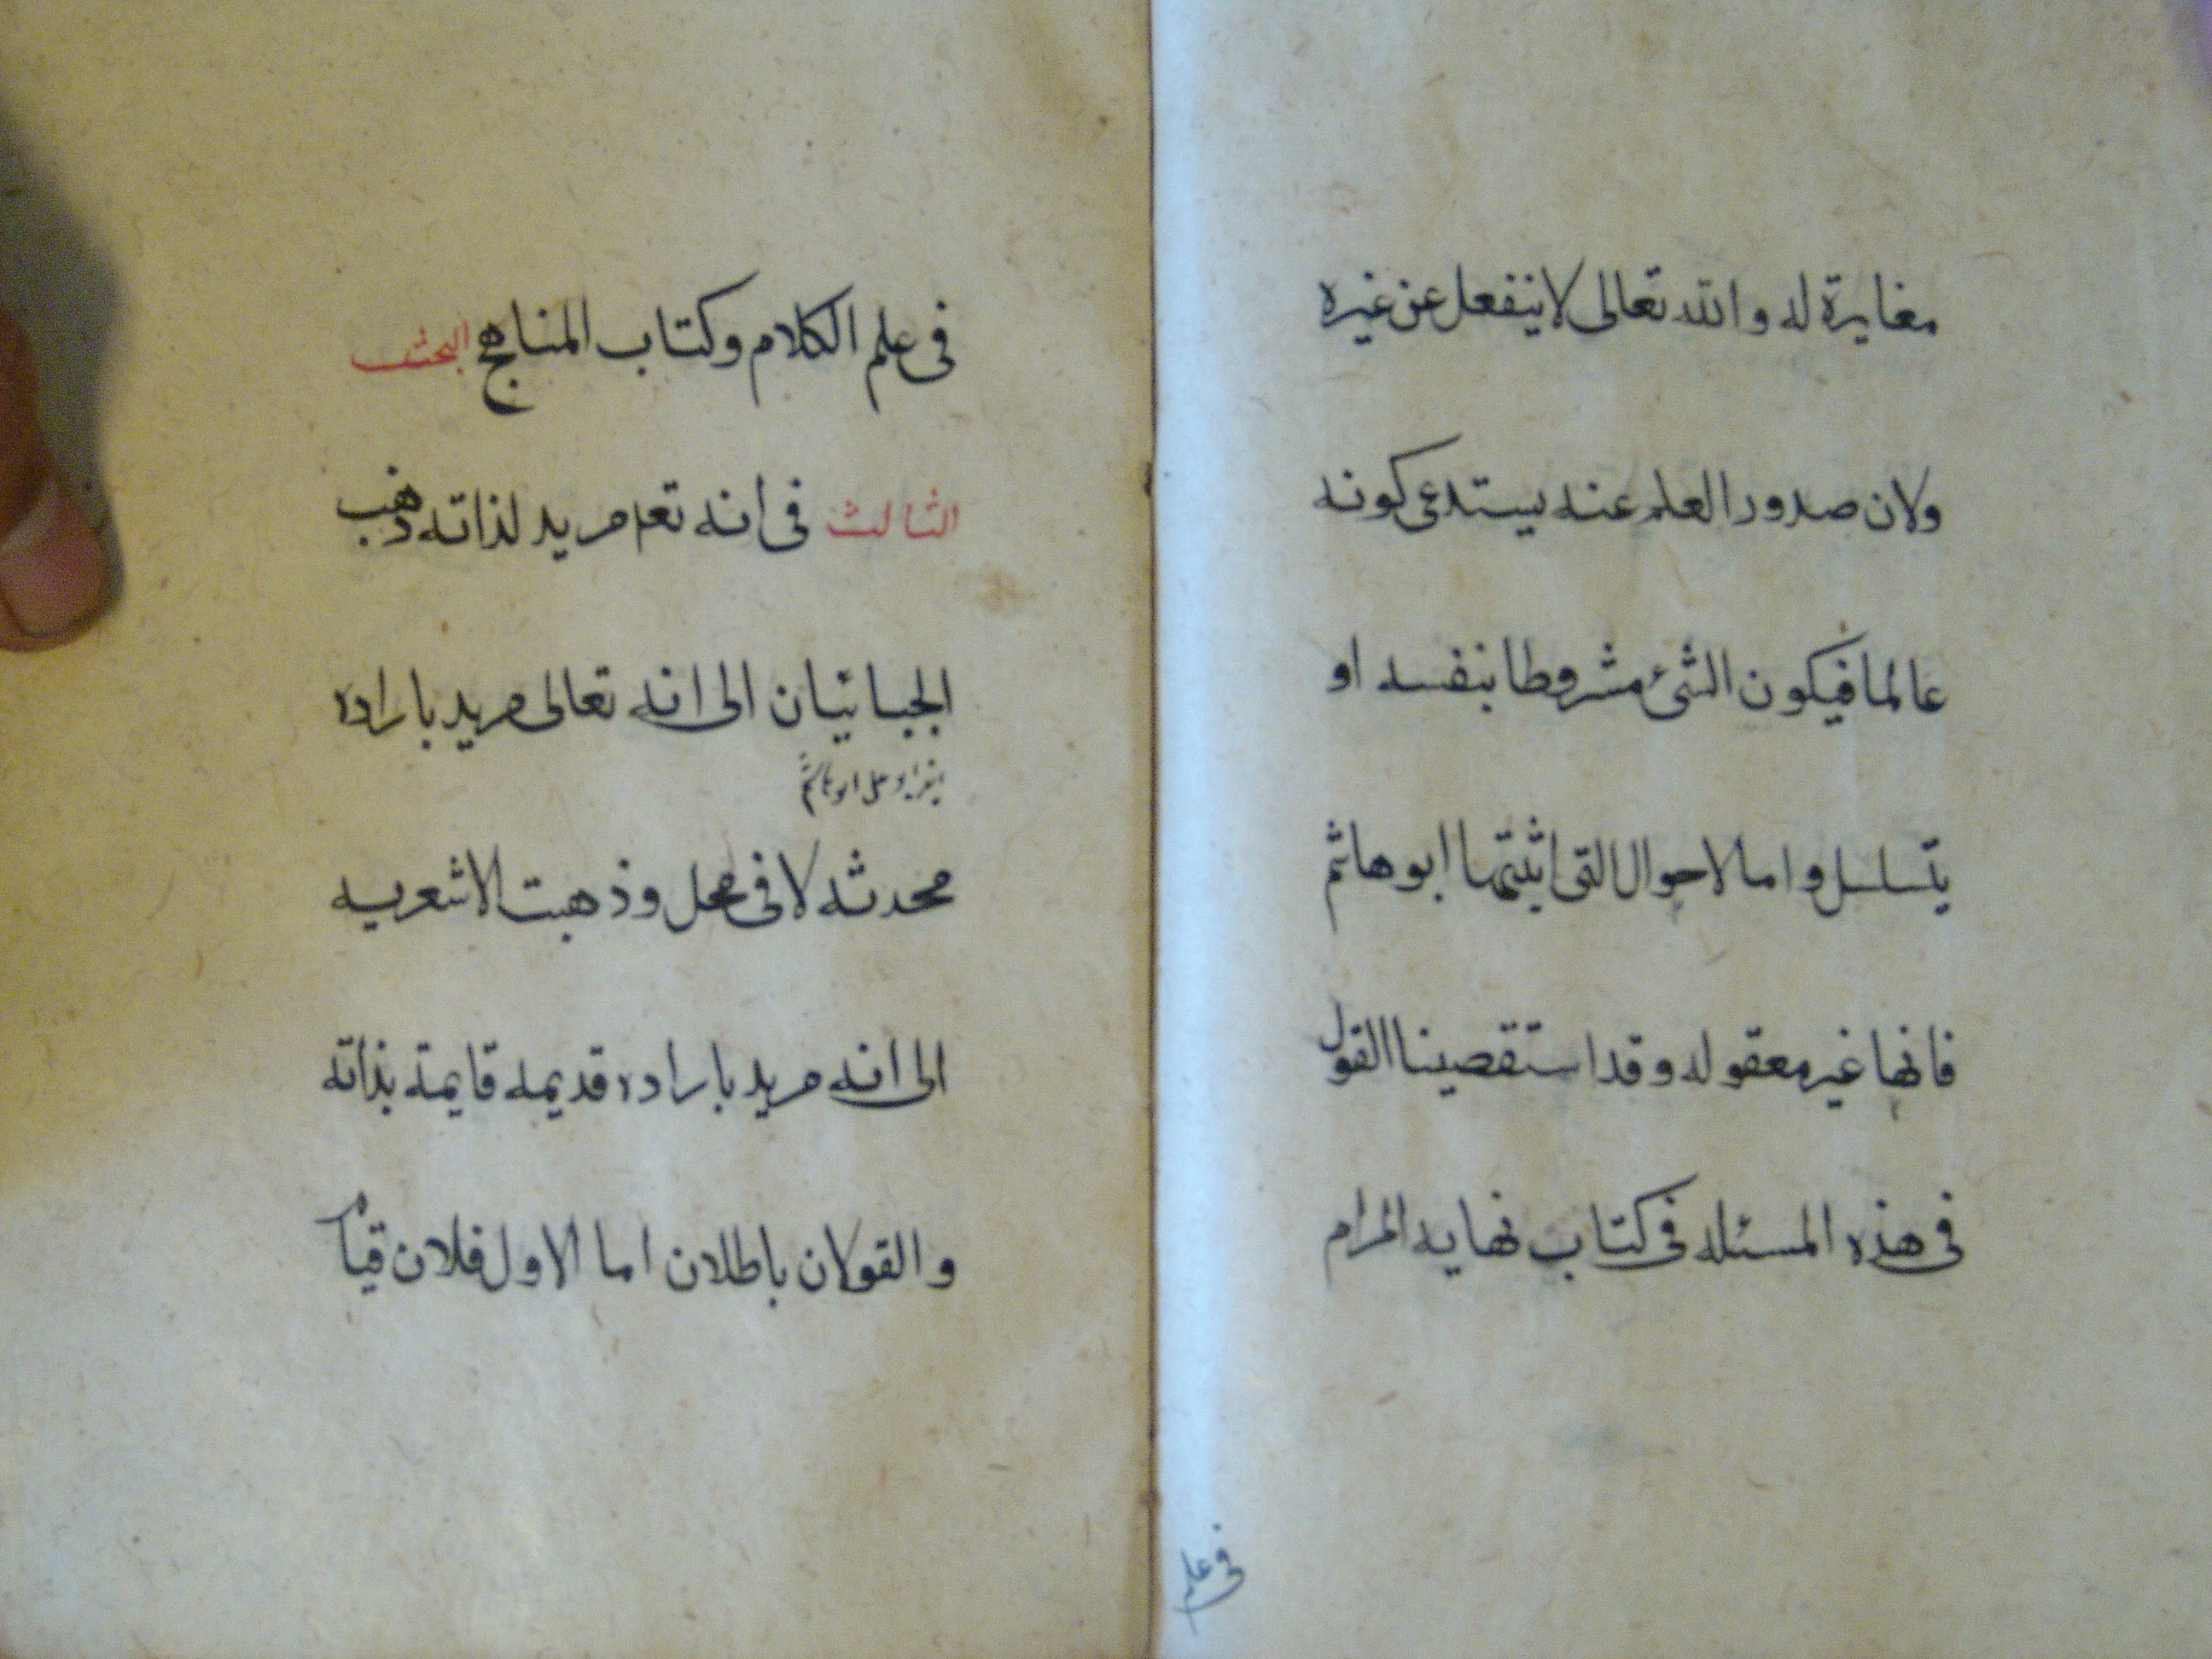 مغايرة له والله تعالى لا ينفعل عن غيره
ولان صدور العلم عنه يستدعى كونه
عالما فيكون الشئ مشروطا بنفسه او
يتسلسل واما الاحوال التى اثبتها ابو هاشم
فانها غير معقوله وقد استقصينا القول
فى هذه المسئله فى كتاب نهايه المرام
فى علم
فى علم الكلام وكتاب المناهج البحث
الثالث فى انه تعا مريد لذاته ذهب
الجبائيان الى انه تعالى مريد باراده
محدثه لا فى محل وذهبت الاشعريه
الى انه مريد باراده قديمه قايمة بذاته
والقولان باطلان اما الاول فلان قيام